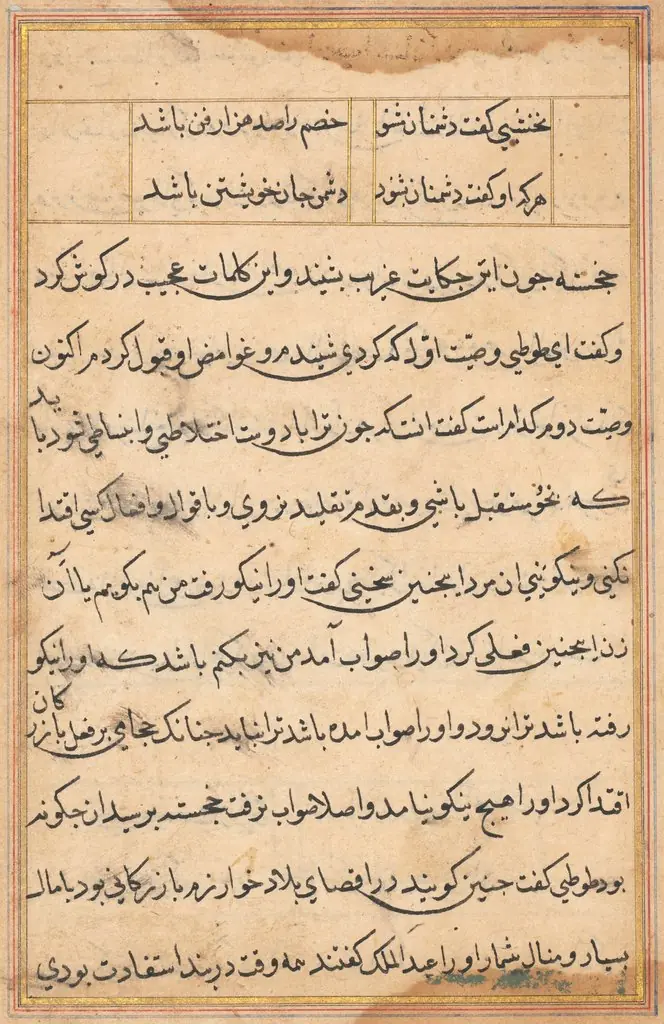 نخشبی گفت دشمنان شنو خصم را صد هزار فن باشد
هرکه او گفت دشمنان شنود دشمن جان خویشتن باشد
خجسته جون این حکایت غریب بشنید و این کلمات عجیب در کوش کرد
و کفت ای طوطی وصیت اول که کردی شنیدم و غوامض او قبول کردم اکنون
وصیت دوم کدام است کفت انست که جون ترا با دوست اختلاطی و انبساطی شود باید
که بخود مستقبل باشی و بقدم تقلید نروی و با قوال و افعال کسی اقتدا
نکنی و نیکو بینی ان مرد اینجنین سخنی کفت اورا نیکو رفت من هم بکویم یا آن
زن اینجنین فعلی کرد اورا صواب آمد من نیز بکنم باشد که اورا نیکو
رفته باشد ترا نرود و اورا صواب امده باشد ترا نیاید جنانک حجامی بر فعل بازرکان
اقتدا کرد اورا هیج نیکو نیامد و اصلا صواب نرفت خجسته برسید ان جکونه
بود طوطی کفت جنین کویند در اقصای بلاد خوارزم بازرکانی بود با مال
بسیار و منال شمار اورا عبد الملک کفتند همه وقت در بند استفادت بودی